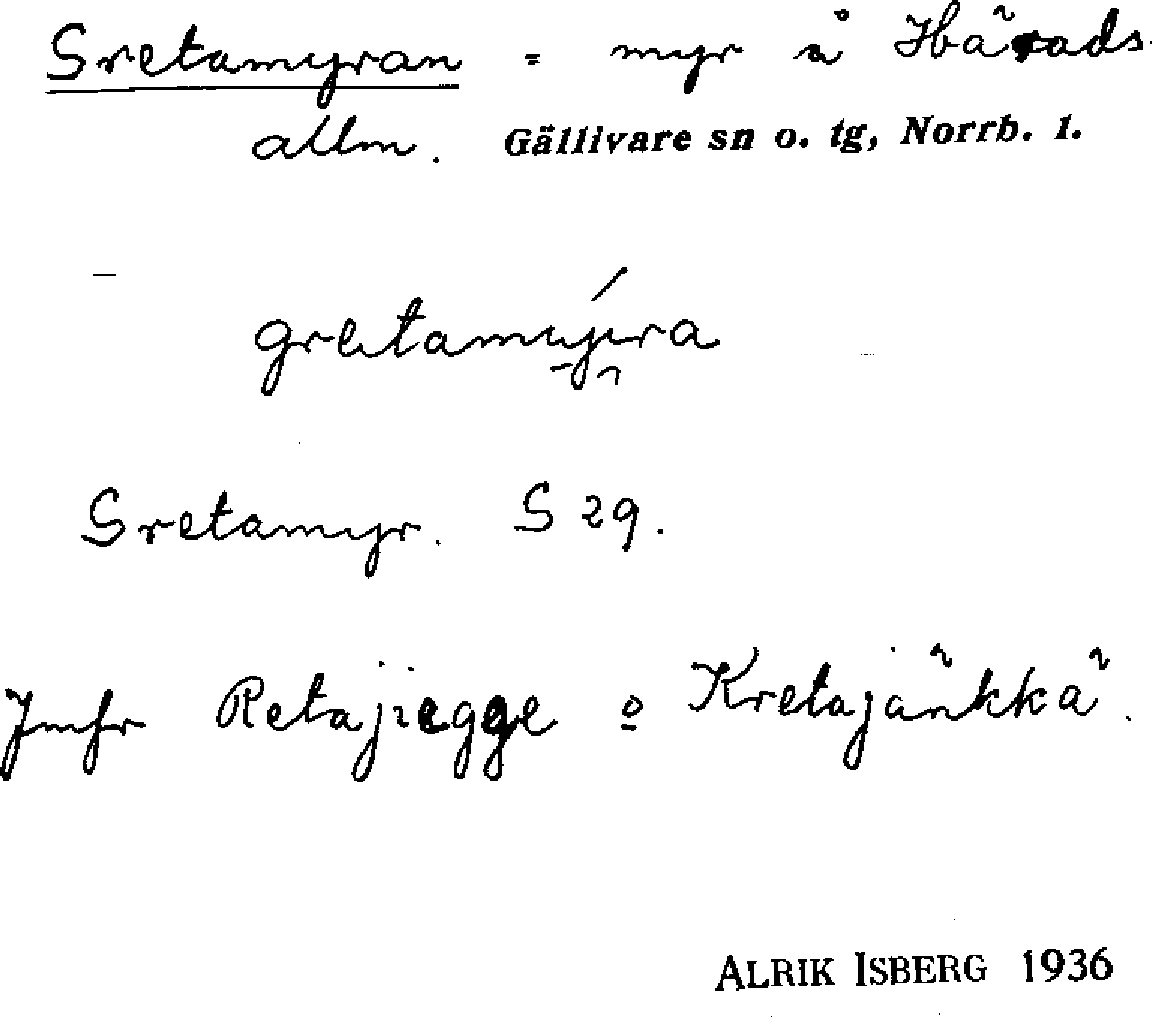 Gretamyran = myr å Härads-
allm. Gällivare sn o. tg, Norrb. l.
Gretamyr. G 29.
Jmfr Retajiegge o Kretajänkkä.
ALRIK ISBERG 1936